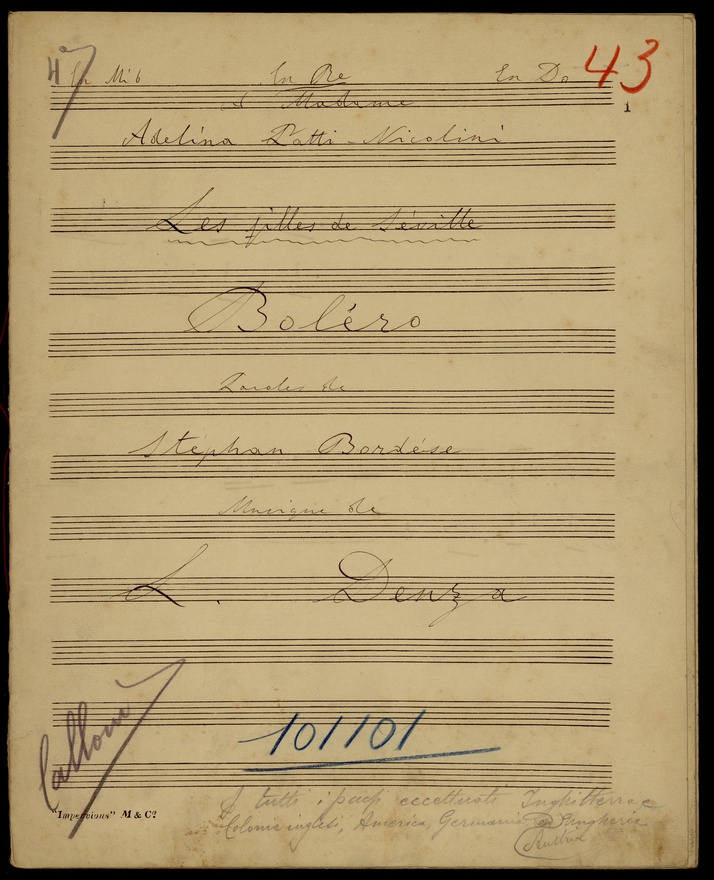 47
43
In Mi b In Re In Do
1
à Madame
Adelina Patti-Nicolini
Les filles de Séville
Boléro
Paroles de
Stéphan Bordèse
Musique de
L. Denza
101101
"Impervious" M & Cº
tutti i paesi eccettuati Inghilterra e
Colonie inglesi, America, Germania Ungheria
Austria